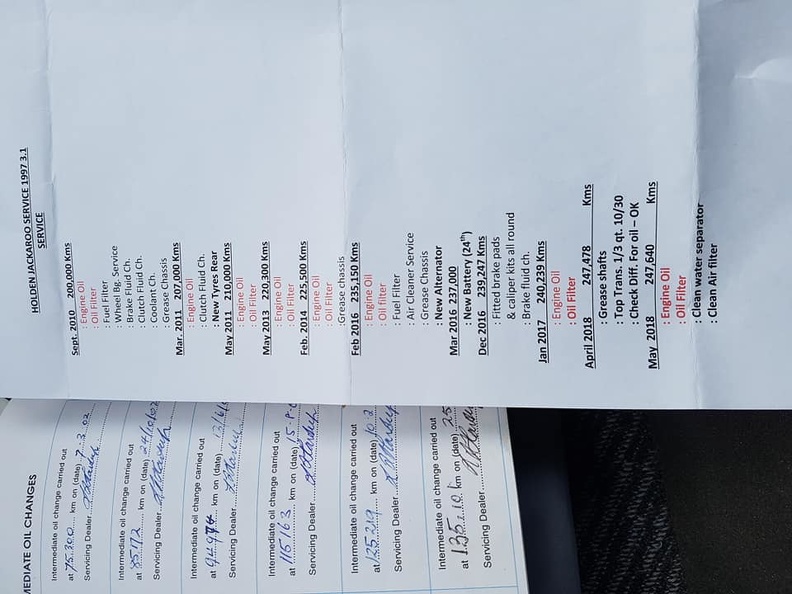 HOLDEN JACKAROO SERVICE 1997 3.1
SERVICE
Sept. 2010 200,000 Kms
: Engine Oil
: Oil Filter
: Fuel Filter
: Wheel Bg. Service
: Brake Fluid Ch.
: Clutch Fluid Ch.
: Coolant Ch.
: Grease Chassis
Mar. 2011 207,000 Kms
: Engine Oil
: Clutch Fluid Ch.
: New Tyres Rear
May 2011 210,000 Kms
: Engine Oil
: Oil Filter
May 2013 220,300 Kms
: Engine Oil
: Oil Filter
Feb. 2014 225,500 Kms
: Engine Oil
: Oil Filter
:Grease chassis
Feb 2016 235,150 Kms
: Engine Oil
: Oil filter
: Fuel Filter
: Air Cleaner Service
: Grease Chassis
: New Alternator
Mar 2016 237,000
: New Battery (24th)
Dec 2016 239,247 Kms
: Fitted brake pads
& caliper kits all round
: Brake fluid ch.
Jan 2017 240,239 Kms
: Engine Oil
: Oil Filter
April 2018 247,478 Kms
: Grease shafts
: Top Trans. 1/3 qt. 10/30
: Check Diff. For oil – OK
May 2018 247,640 Kms
: Engine Oil
: Oil Filter
: Clean water separator
: Clean Air filter
MEDIATE OIL CHANGES
Intermediate oil change carried out
at 75300 km on (date) 7.3.02
Servicing Dealer
Intermediate oil change carried out
at 85172 km on (date) 24/10/02
Servicing Dealer
Intermediate oil change carried out
at km on (date) 13/6/
Servicing Dealer
Intermediate oil change carried out
at 115163 km on (date) 15.9.
Servicing Dealer
Intermediate oil change carried out
at 125219 km on (date) 10.2
Servicing Dealer
Intermediate oil change carried out
at 135101 km on (date) 25
Servicing Dealer